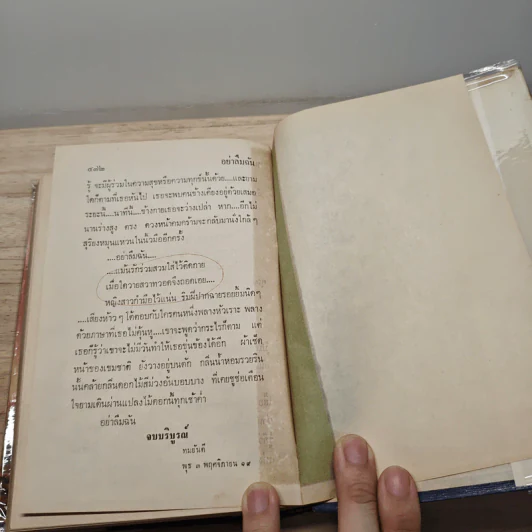 ๕๗๒ อย่าลืมฉัน
รู้ จะมีผู้ร่วมในความสุขหรือความทุกข์นั้นด้วย....และยาม
ใดก็ตามที่เธอหันไป เธอจะพบคนข้างเคียงอยู่ด้วยเสมอ
ระยะนี้....นาทีนี้....ข้างกายเธอจะว่างเปล่า หาก....อีกไม่
นานร่างสูง ตรง ดวงหน้าคมคร้ามจะกลับมานั่งใกล้ๆ
สุริยงหมุนแหวนในนิ้วมืออีกครั้ง
....อย่าลืมฉัน....
....แม้นรักร่วมสวมใส่ไว้ติดกาย
เมื่อใดวายสวาทวอดจึงถอดเอย....
หญิงสาวกำมือไว้แน่น ริมฝีปากฉายรอยยิ้มนิดๆ
....เสียงห้าวๆ โต้ตอบกับใครคนหนึ่งพลางหัวเราะ พลาง
ด้วยภาษาที่เธอไม่คุ้นหู....เขาจะพูดว่ากระไรก็ตาม แต่
เธอก็รู้ว่าเขาจะไม่มีวันทำให้เธอขุ่นข้องได้อีก ผ้าเช็ด
หน้าของเขมชาติ ยังวางอยู่บนตัก กลิ่นน้ำหอมรวยริน
นั้นคล้ายกลิ่นดอกไม้สีม่วงอันบอบบาง ที่เคยชูช่อเตือน
ใจยามเดินผ่านแปลงไม้ดอกนี้ทุกเช้าค่ำ
อย่าลืมฉัน
จบบริบูรณ์
ทมยันตี
พุธ ๓ พฤศจิกายน ๑๙